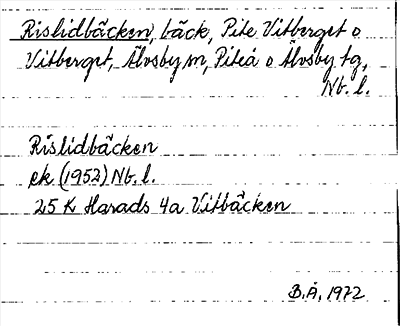 Rislidbäcken, bäck, Pite Vitberget o
Vitberget, Älvsby sn, Piteå o Älvsby tg,
Nb. l.
Rislidbäcken
ek (1952) Nb. l.
25 K Harads 4a Vitbäcken
B.Å. 1972